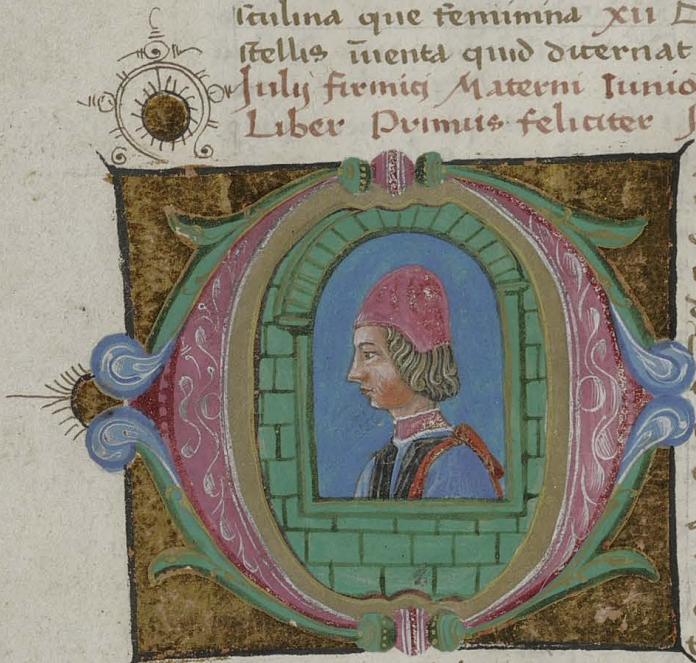 sculina que feminina XII
stellis īuenta quid dicernat
Julij firmici Materni Iunio
Liber Primus feliciter
O